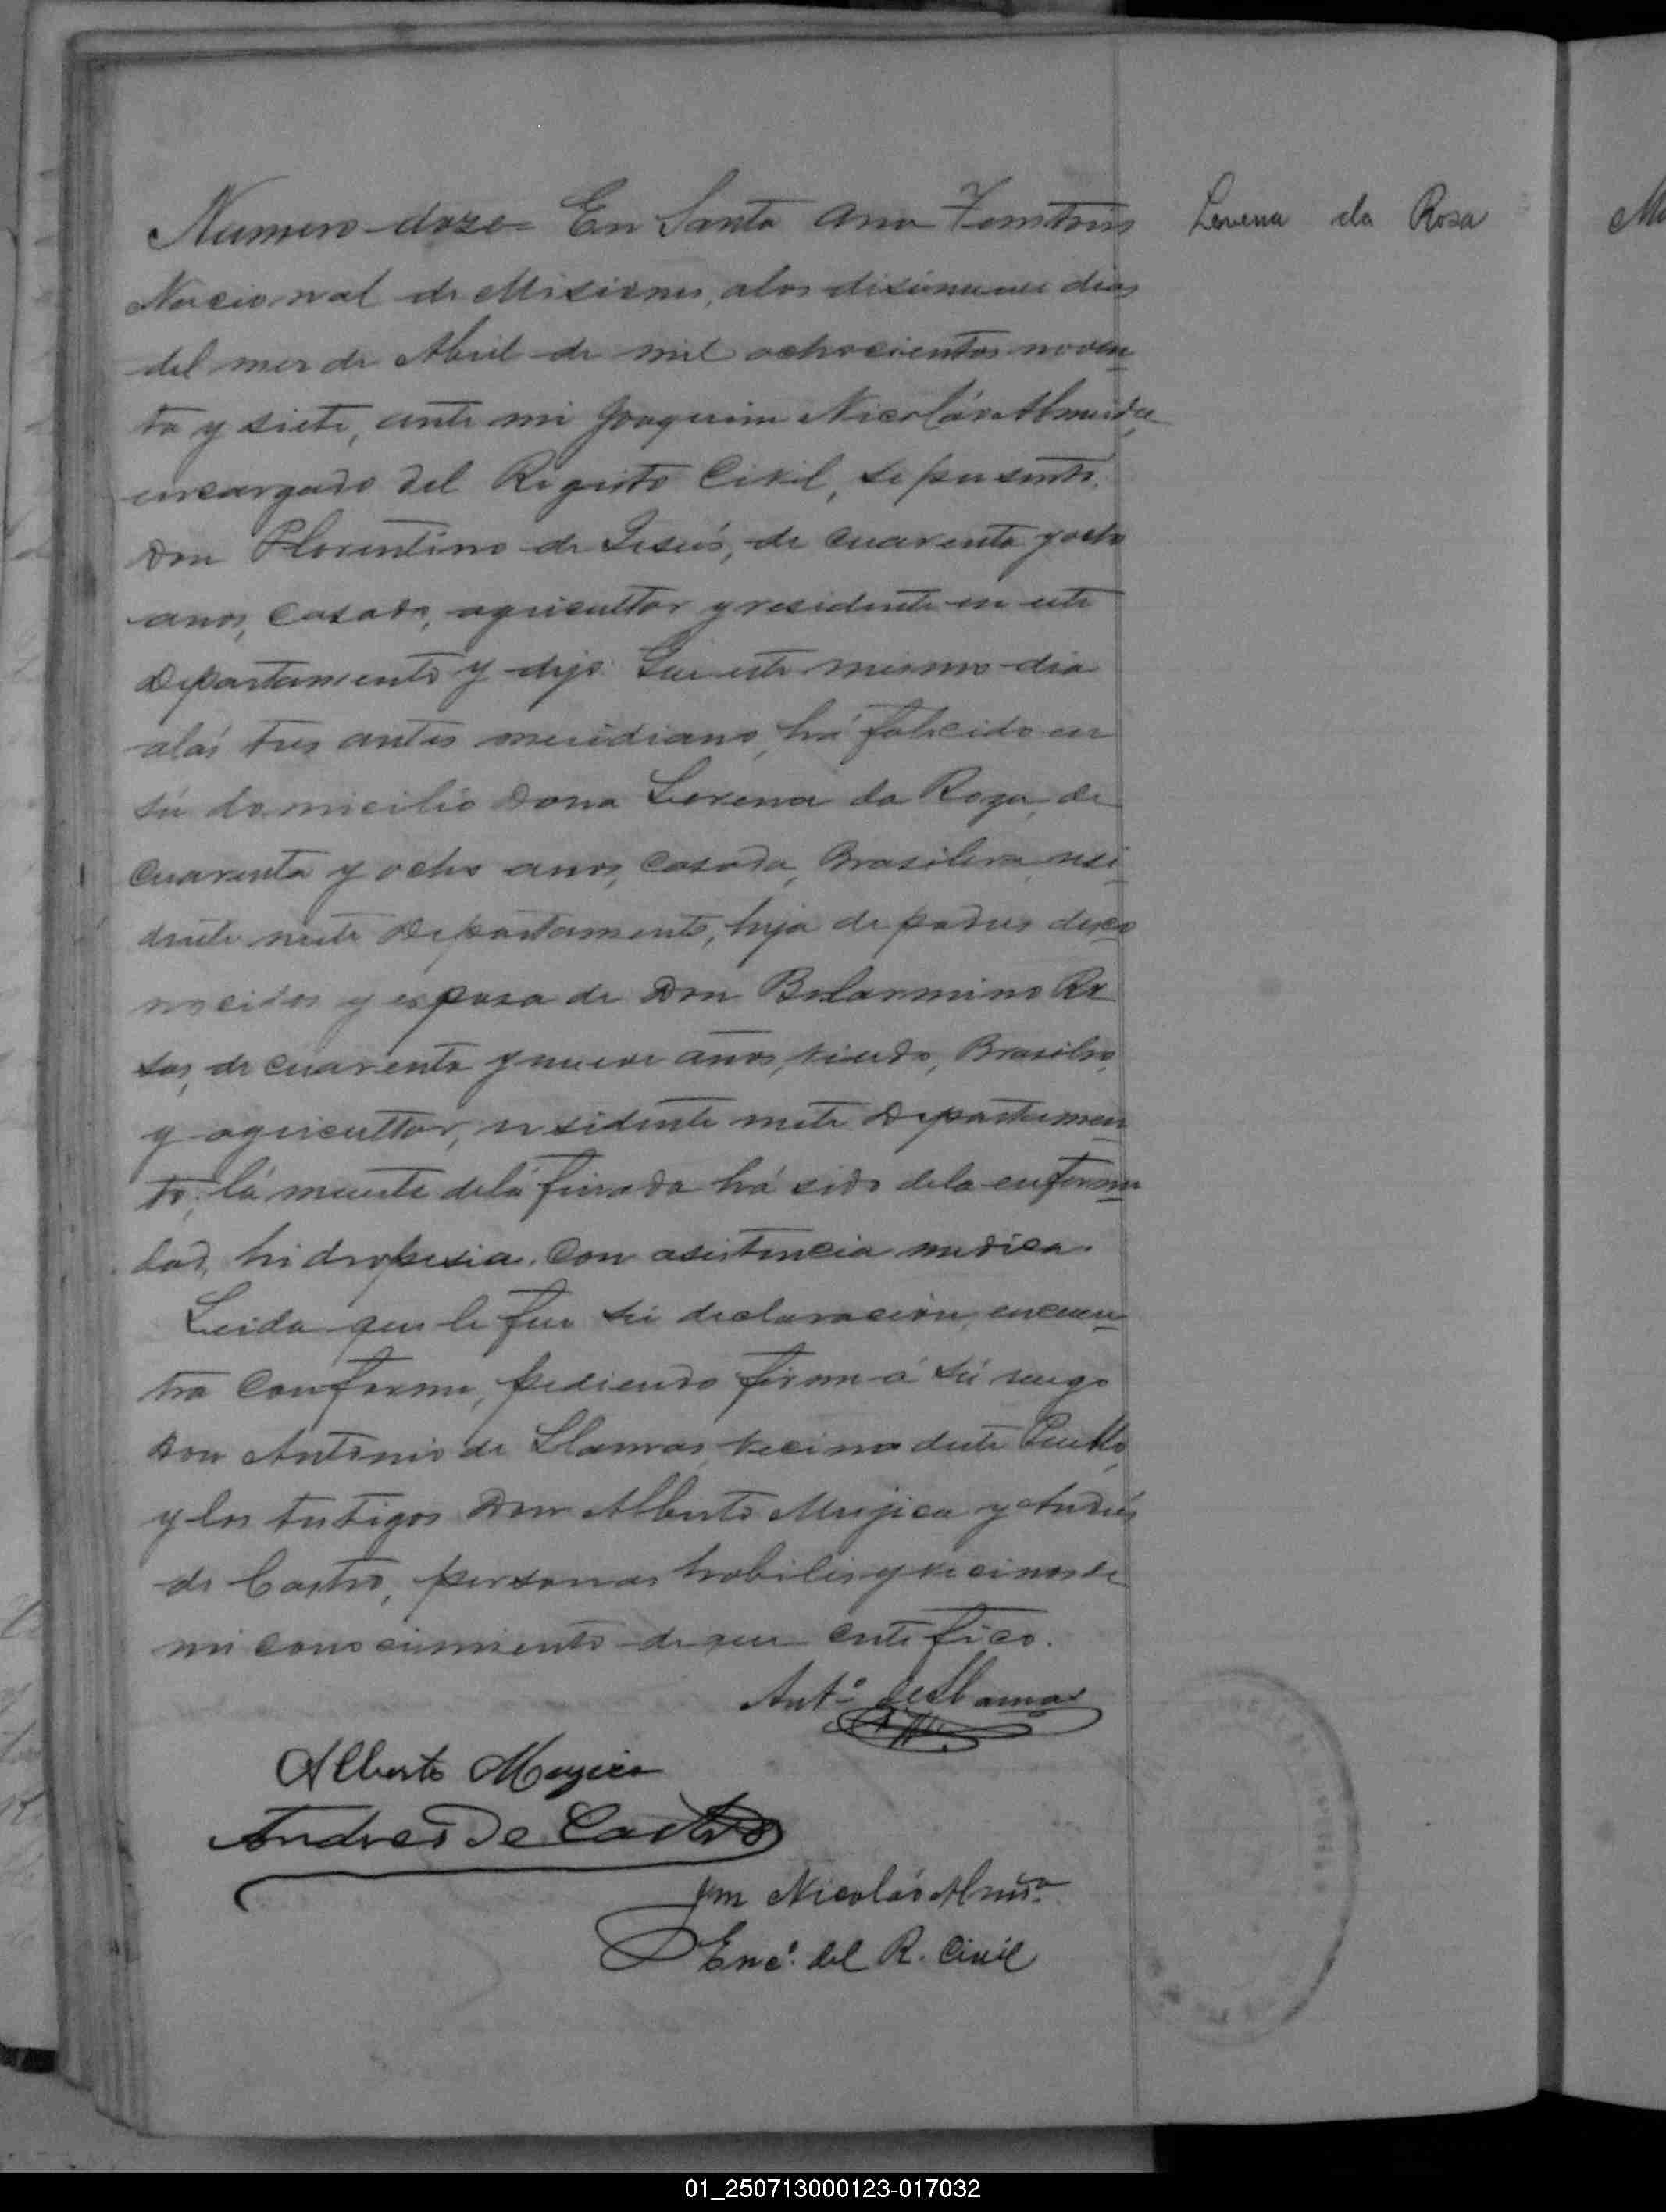 Numero doze= En Santa Ana Territorio
Nacional de Misiones, alos disinueve dias
del mes de Abril de mil ochocientos noven
ta y siete, ante mi Joaquim Nicolás Almeida,
encargado del Registo Civil, se presento
Don Florentino de Jesús, de cuarenta y ocho
anos, casado, agricultor y residente en este
Departamento y dijo: Que este mismo dia
alás tres antes meridiano, há falicido en
sú domicilio Dona Lorena da Roza, de
cuarenta y ocho anos, casada, Brasilera, resi
dente neste Departamento, hija de padres desco
nocidos y esposa de Don Belarmino Ro
sas, de cuarenta y nueve anos, viudo, Brasilro,
y agricultor, residente neste Departamen
to; lá muerte delá finada há sido dela enferme
dad, hidropesia. Con asistencia medica.
Leida que le fue sú declaración, encuen
tra conforme, pediendo firme á sú ruego
Don Antonio de Llamas, vecino deste Pueblo,
y los testigos Don Alberto Mujica y Andrés
de Castro, personas habiles y vecinos de
mi conocimiento de que certifico.
Antº de Llamas
Alberto Mujica
Andres De Castro
Jm Nicolás Almda
Encº. del R. Civil
da Rosa
01_250713000123-017032